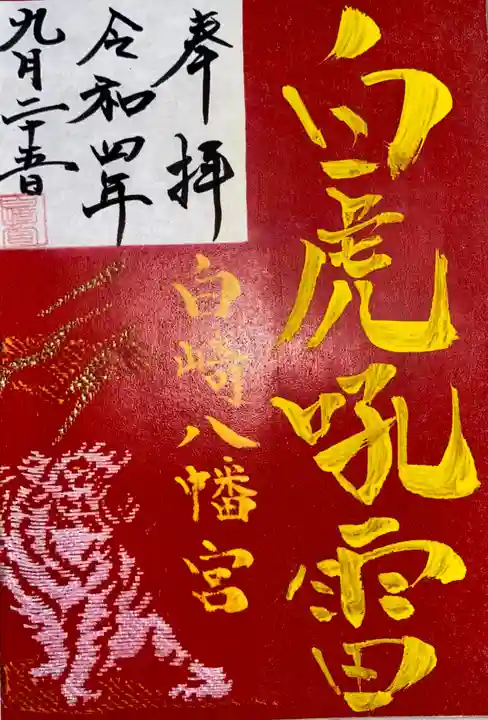 白虎吼雷
白崎八幡宮
奉拝
令和四年
九月二十五日